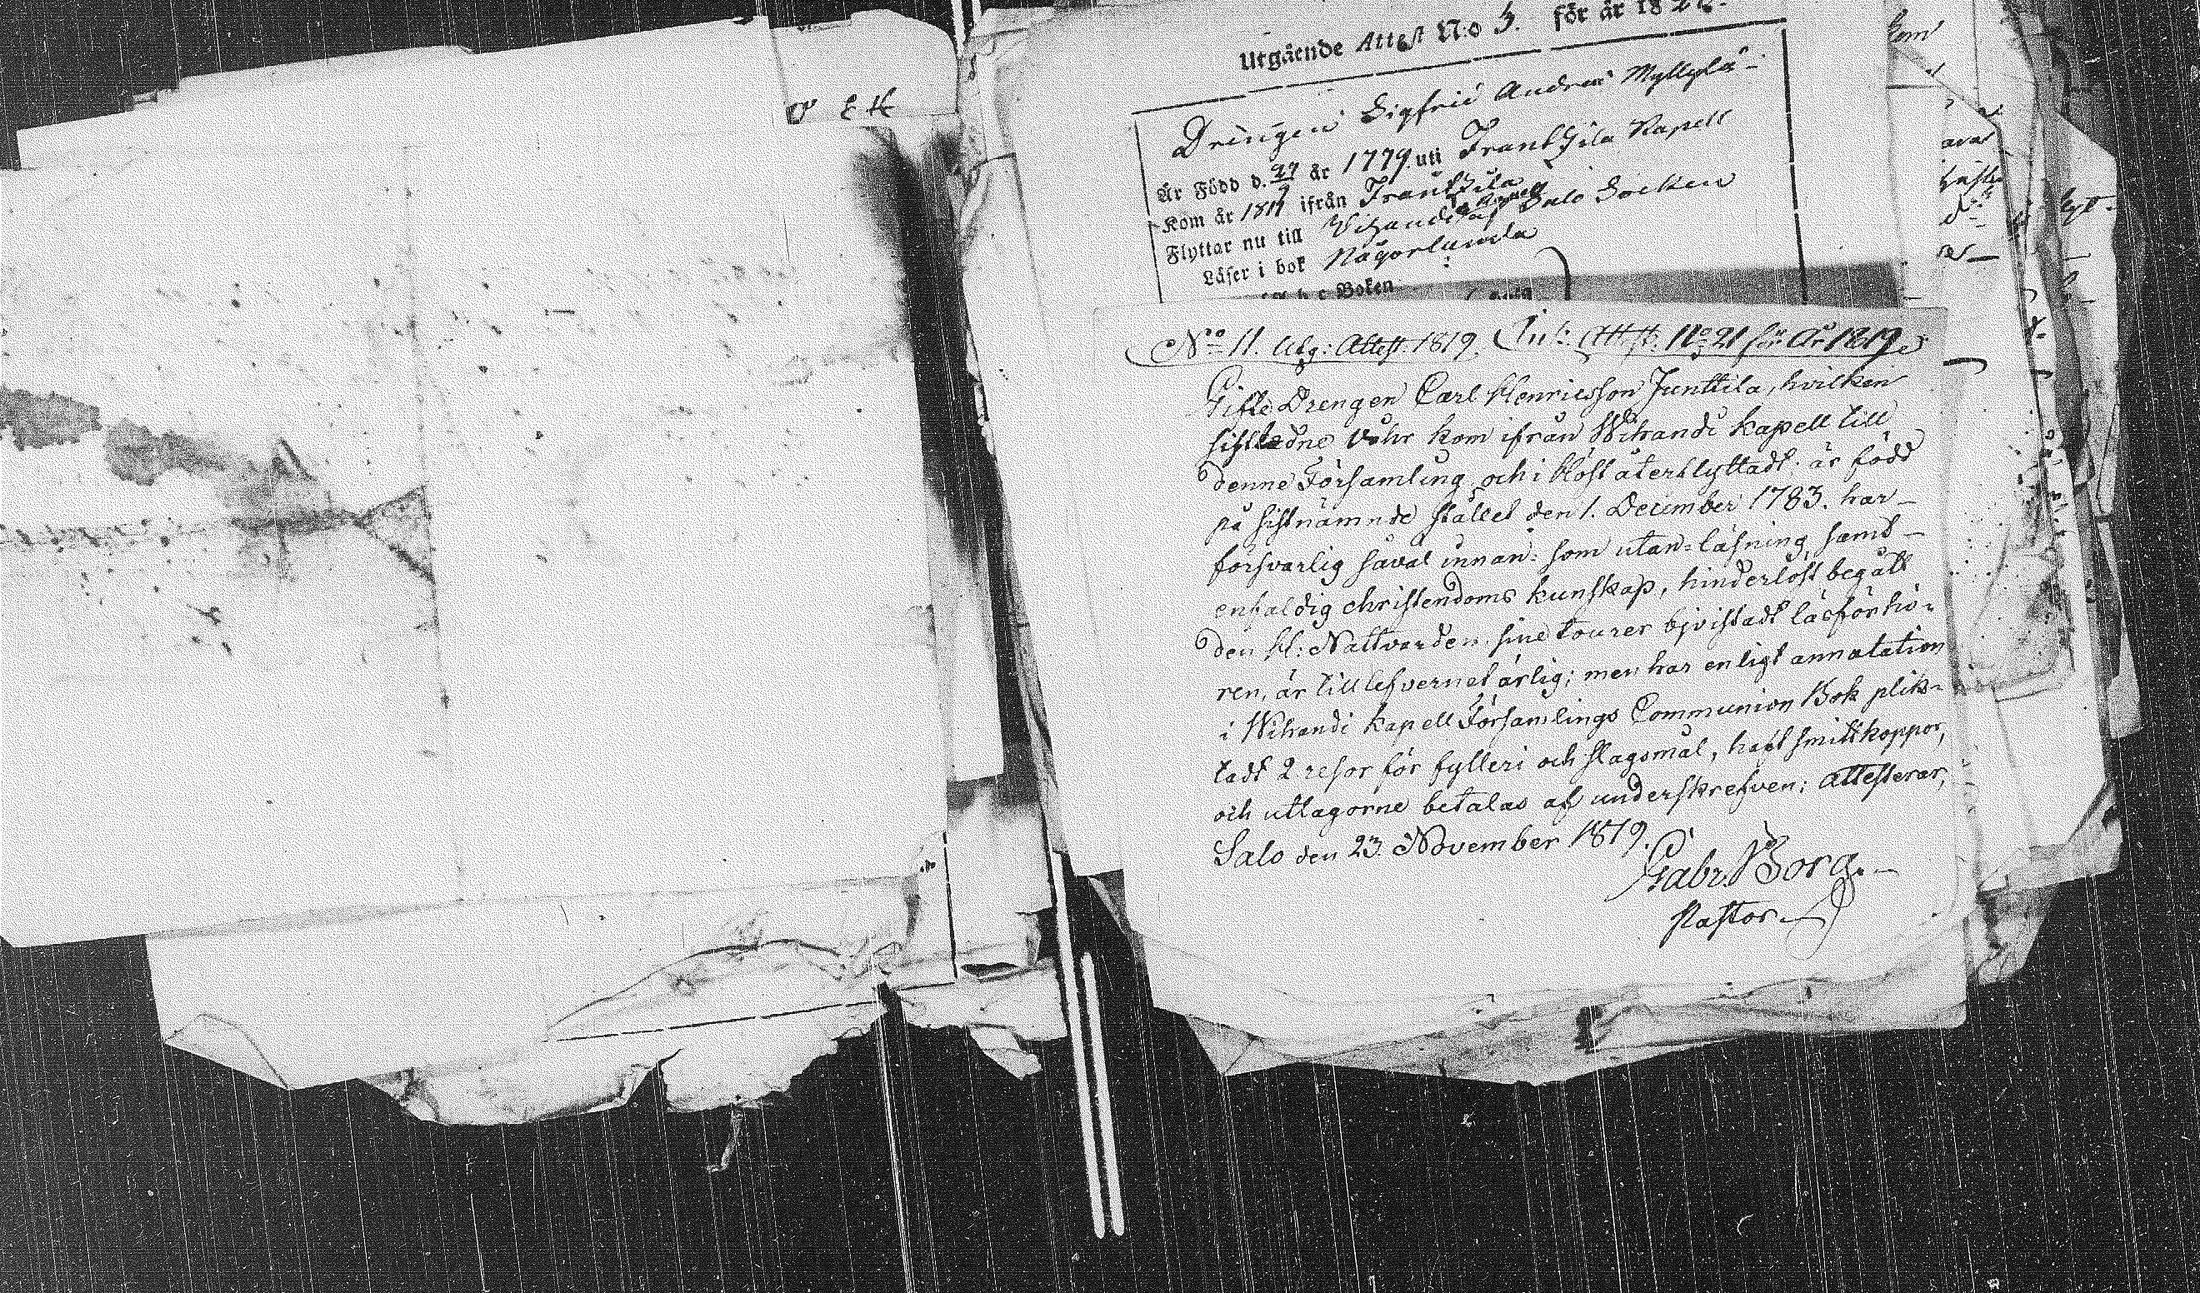 E. H.
Utgående Attest N:o 3. för år 18
Drängen Sigfrid Andrew Myllylä
Är Född d. 27 år 1779 uti Frantzila Kapell
Kom år 1817 ifrån Frantzila
Kapell
Flyttar nu till Vihandi af Salo Socken
Läser i bok Någorlunda
Boken
N:o 11. Utg: Attest. 1819. Ink: Attest: N:o 21 för År 1819
Gifte Drengen Carl Henricsson Junttila, hvilken
sistledne Våhr kom ifrån Wihandi kapell till
denne Församling och i Höst återflyttadt. är född
på sistnämnde stället den 1. December 1783. har
försvarlig såväl innan: som utan-läsning samt
enfaldig christendoms kunskap, hinderlöst begått
den H: Nattvarden. sine tourer bjvistadt läsförhö-
ren, är till lefvernet ärlig; men har enligt annotation
i Wihandi kapell Församlings Communion Bok plik-
tadt 2 resor för fylleri och slagsmål, haft smittkoppor,
och utlagorne betalas af underskrefven; attesterar,
Salo den 23. November 1819.
Gabr. Borg.
Pastor